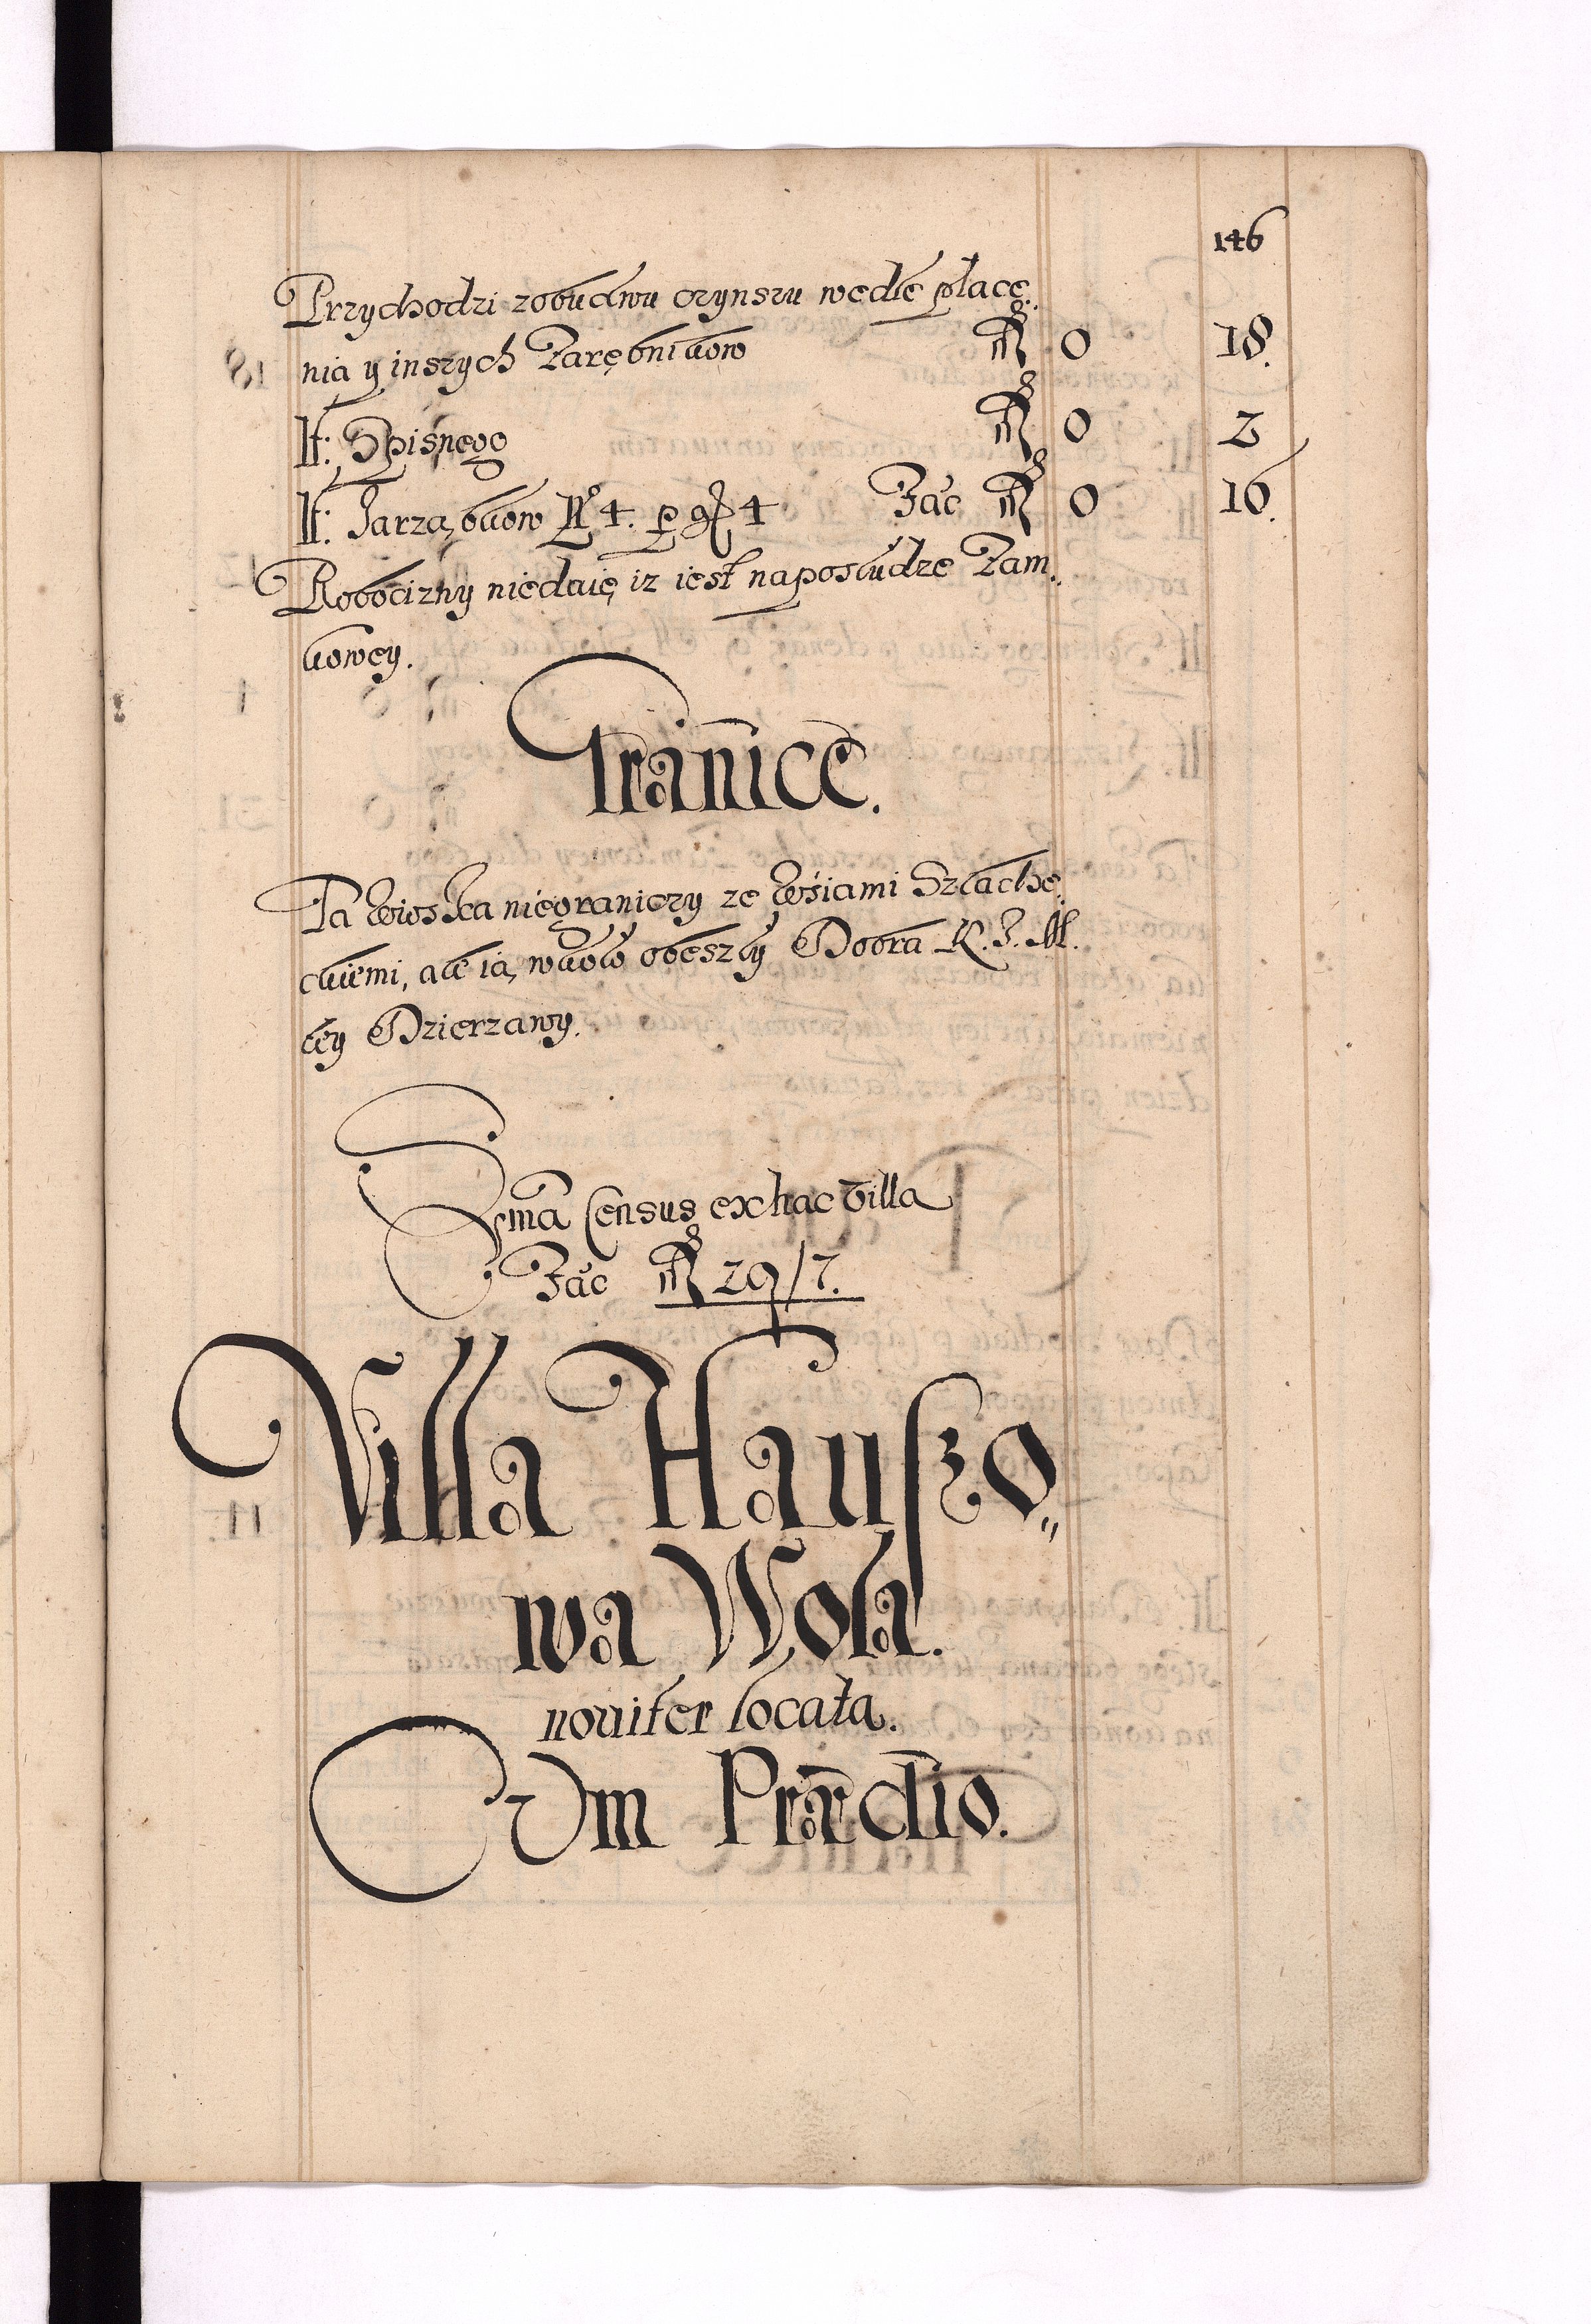 146
Przychodzi zobudwu czynszu wedle płacę.
nia y inszych Zarębnikow fl 0 18.
It: Spisnego fl 0 2
It: Jarząbkow No 4. p gr 4 Fac fl 0 16.
Robocizny niedaię iz iest naposludze Zam.
kowey.
Granice.
Ta Wioska niegraniczy ze Wsiami Szlache.
ckiemi, ale ią wkoło obeszły Dobra K. J. M.
tey Dzierzawy.
Sma Census ex hac Villa
Fac fl 29/7.
Villa Hauszo„
wa Wola.
noviter locata.
Cum Prædio.